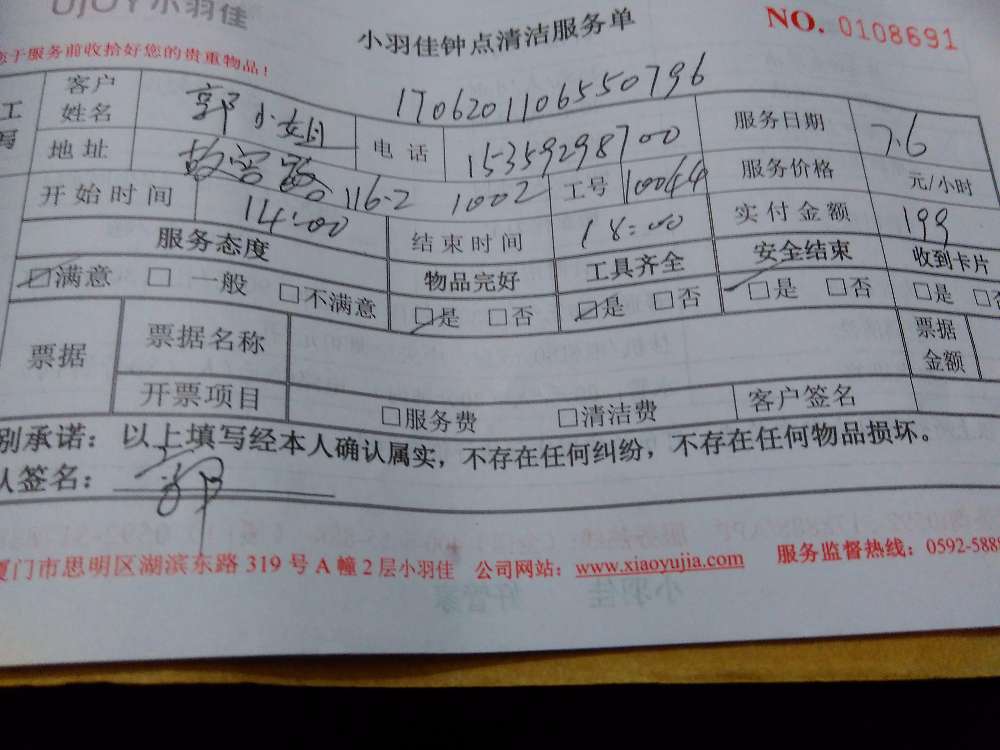 UJOY小羽佳
小羽佳钟点清洁服务单
NO. 0108691
于服务前收拾好您的贵重物品！
1706201106550796
客户姓名 郭小姐 电话 15359298700 服务日期 7.6
地址 116-2 1002 工号 10044 服务价格 元/小时
开始时间 14:00 结束时间 18:00 实付金额 199
服务态度 物品完好 工具齐全 安全结束 收到卡片
☑满意 □一般 □不满意 ☑是 □否 ☑是 □否 ☑是 □否 □是
票据 票据名称 票据金额
开票项目 □服务费 □清洁费 客户签名
别承诺：以上填写经本人确认属实，不存在任何纠纷，不存在任何物品损坏。
签名： 郭
厦门市思明区湖滨东路 319 号 A 幢 2 层小羽佳 公司网站：www.xiaoyujia.com 服务监督热线：0592-5888